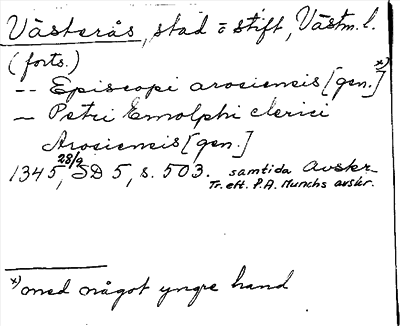 Västerås, stad o stift, Västm. l.
(forts.)
-- Episcopi arosiensis [gen.] *)
- Petri Emolphi clerici
Arosiensis [gen.]
1345 28/9, SD 5, s. 503. samtida Avskr.
Tr. eft. P.A. Munchs avskr.
*) med något yngre hand